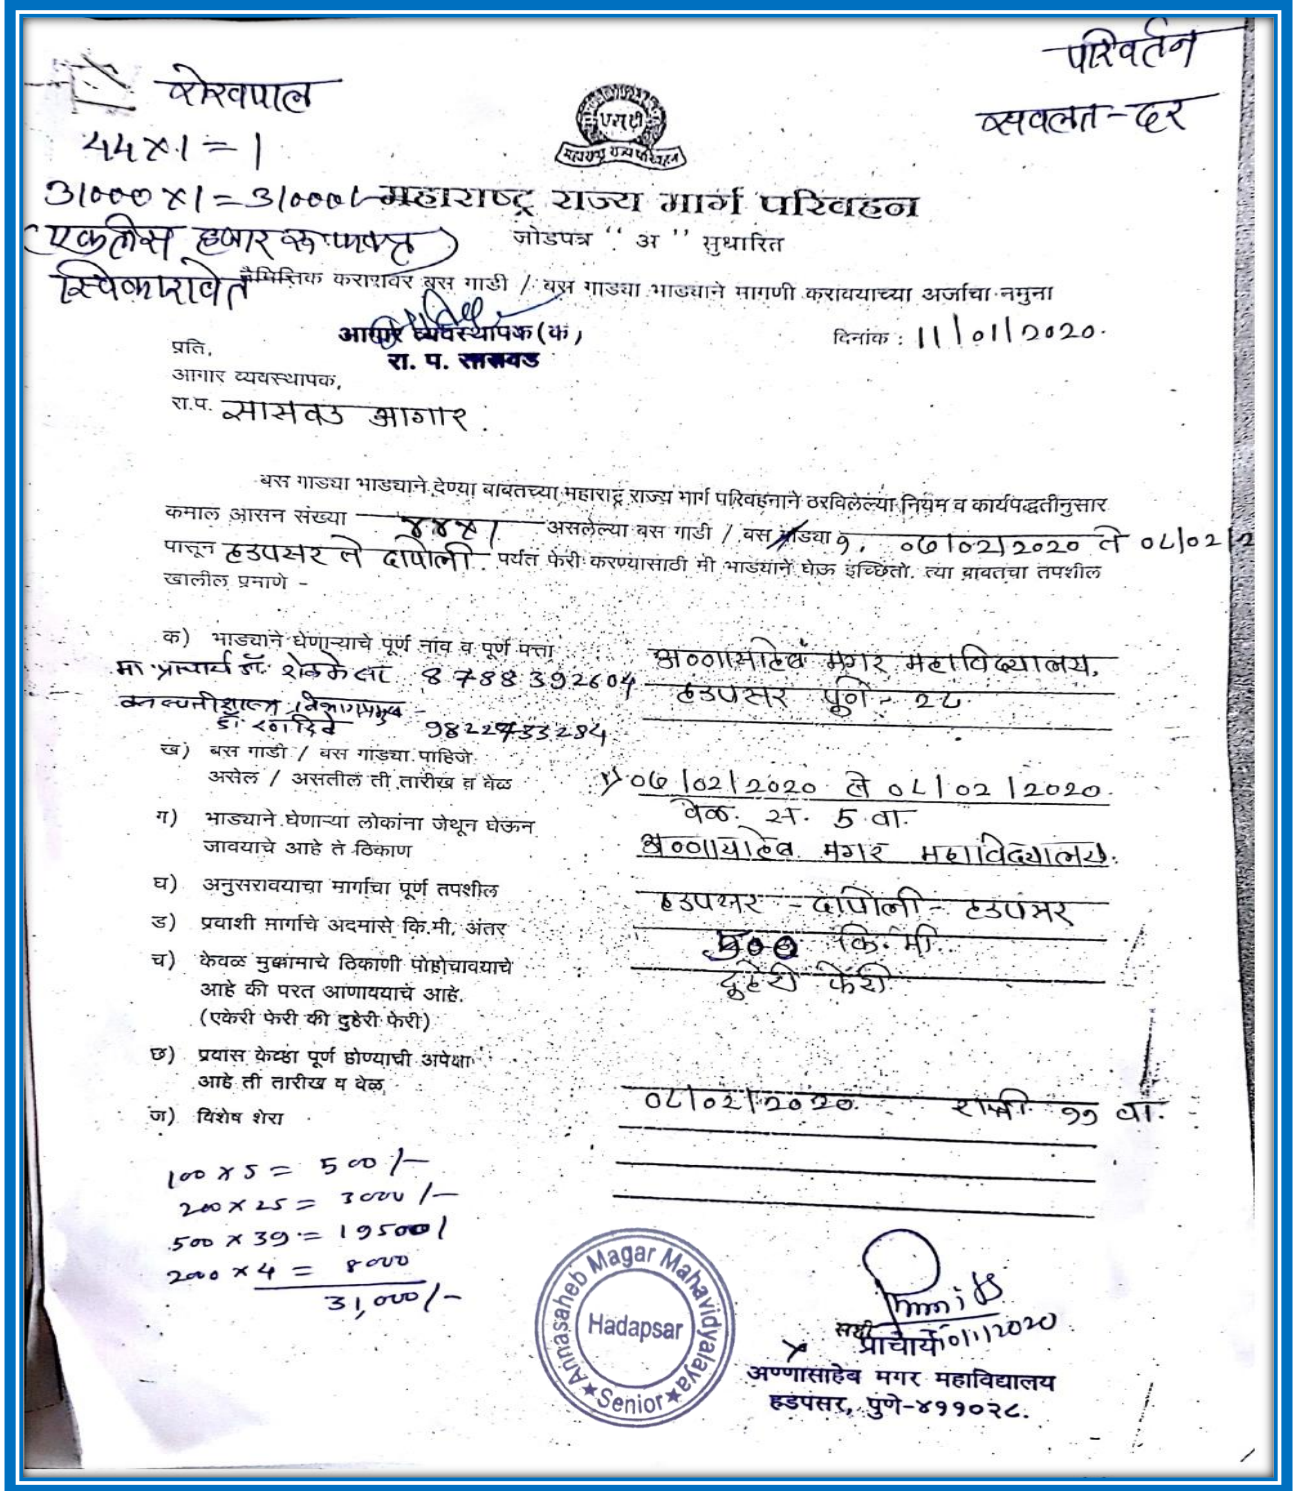 परिवर्तन
सवलत-दर
रोखपाल
44×1=1
31000×1=31000/-
(एकतीस हजार रु फक्त)
स्विकारावेत
एसटी
महाराष्ट्र राज्य मार्ग परिवहन
जोडपत्र " अ " सुधारित
नैमित्तिक करारावर बस गाडी / बस गाड्या भाड्याने मागणी करावयाच्या अर्जाचा नमुना
आगार व्यवस्थापक (क)
रा. प. सासवड
दिनांक : 11/01/2020.
प्रति,
आगार व्यवस्थापक,
रा.प. सासवड आगार.
बस गाड्या भाड्याने देण्या बाबतच्या महाराष्ट्र राज्य मार्ग परिवहनाने ठरविलेल्या नियम व कार्यपद्धतीनुसार
कमाल आसन संख्या ४४×1 असलेल्या बस गाडी / बस गाड्या १. ०७/०२/२०२० ते ०८/०२/२
पासून हडपसर ते दापोली. पर्यंत फेरी करण्यासाठी मी भाड्याने घेऊ इच्छितो. त्या बाबतचा तपशील
खालील प्रमाणे -
क) भाड्याने घेणाऱ्याचे पूर्ण नांव व पूर्ण पत्ता अण्णासाहेब मगर महाविद्यालय,
मा. प्राचार्य डॉ. 8788392604 हडपसर पुणे - २८
वनस्पतीशास्त्र विभागप्रमुख -
डॉ. रणदिवे 9822733284
ख) बस गाडी / बस गाड्या पाहिजे
असेल / असतील ती तारीख व वेळ ०७/०२/२०२० ते ०८/०२/२०२०.
वेळ. स. ५ वा.
ग) भाड्याने घेणाऱ्या लोकांना जेथून घेऊन
जावयाचे आहे ते ठिकाण अण्णासाहेब मगर महाविद्यालय.
घ) अनुसरावयाचा मार्गाचा पूर्ण तपशील हडपसर - दापोली - हडपसर
ड) प्रवाशी मार्गाचे अदमासे कि.मी. अंतर ५०० कि.मी.
च) केवळ मुक्कामाचे ठिकाणी पोहोचावयाचे दुहेरी फेरी
आहे की परत आणावयाचे आहे.
(एकेरी फेरी की दुहेरी फेरी)
छ) प्रवास केव्हा पूर्ण होण्याची अपेक्षा
आहे ती तारीख व वेळ ०८/०२/२०२० रात्री ११ वा.
ज) विशेष शेरा
100 × 5 = 500/-
200 × 25 = 3000/-
500 × 39 = 19500/
2000 × 4 = 8000
31,000/-
Annasaheb Magar Mahavidyalaya
Hadapsar
Senior
सही
प्राचार्य
अण्णासाहेब मगर महाविद्यालय
हडपसर, पुणे-४११०२८.